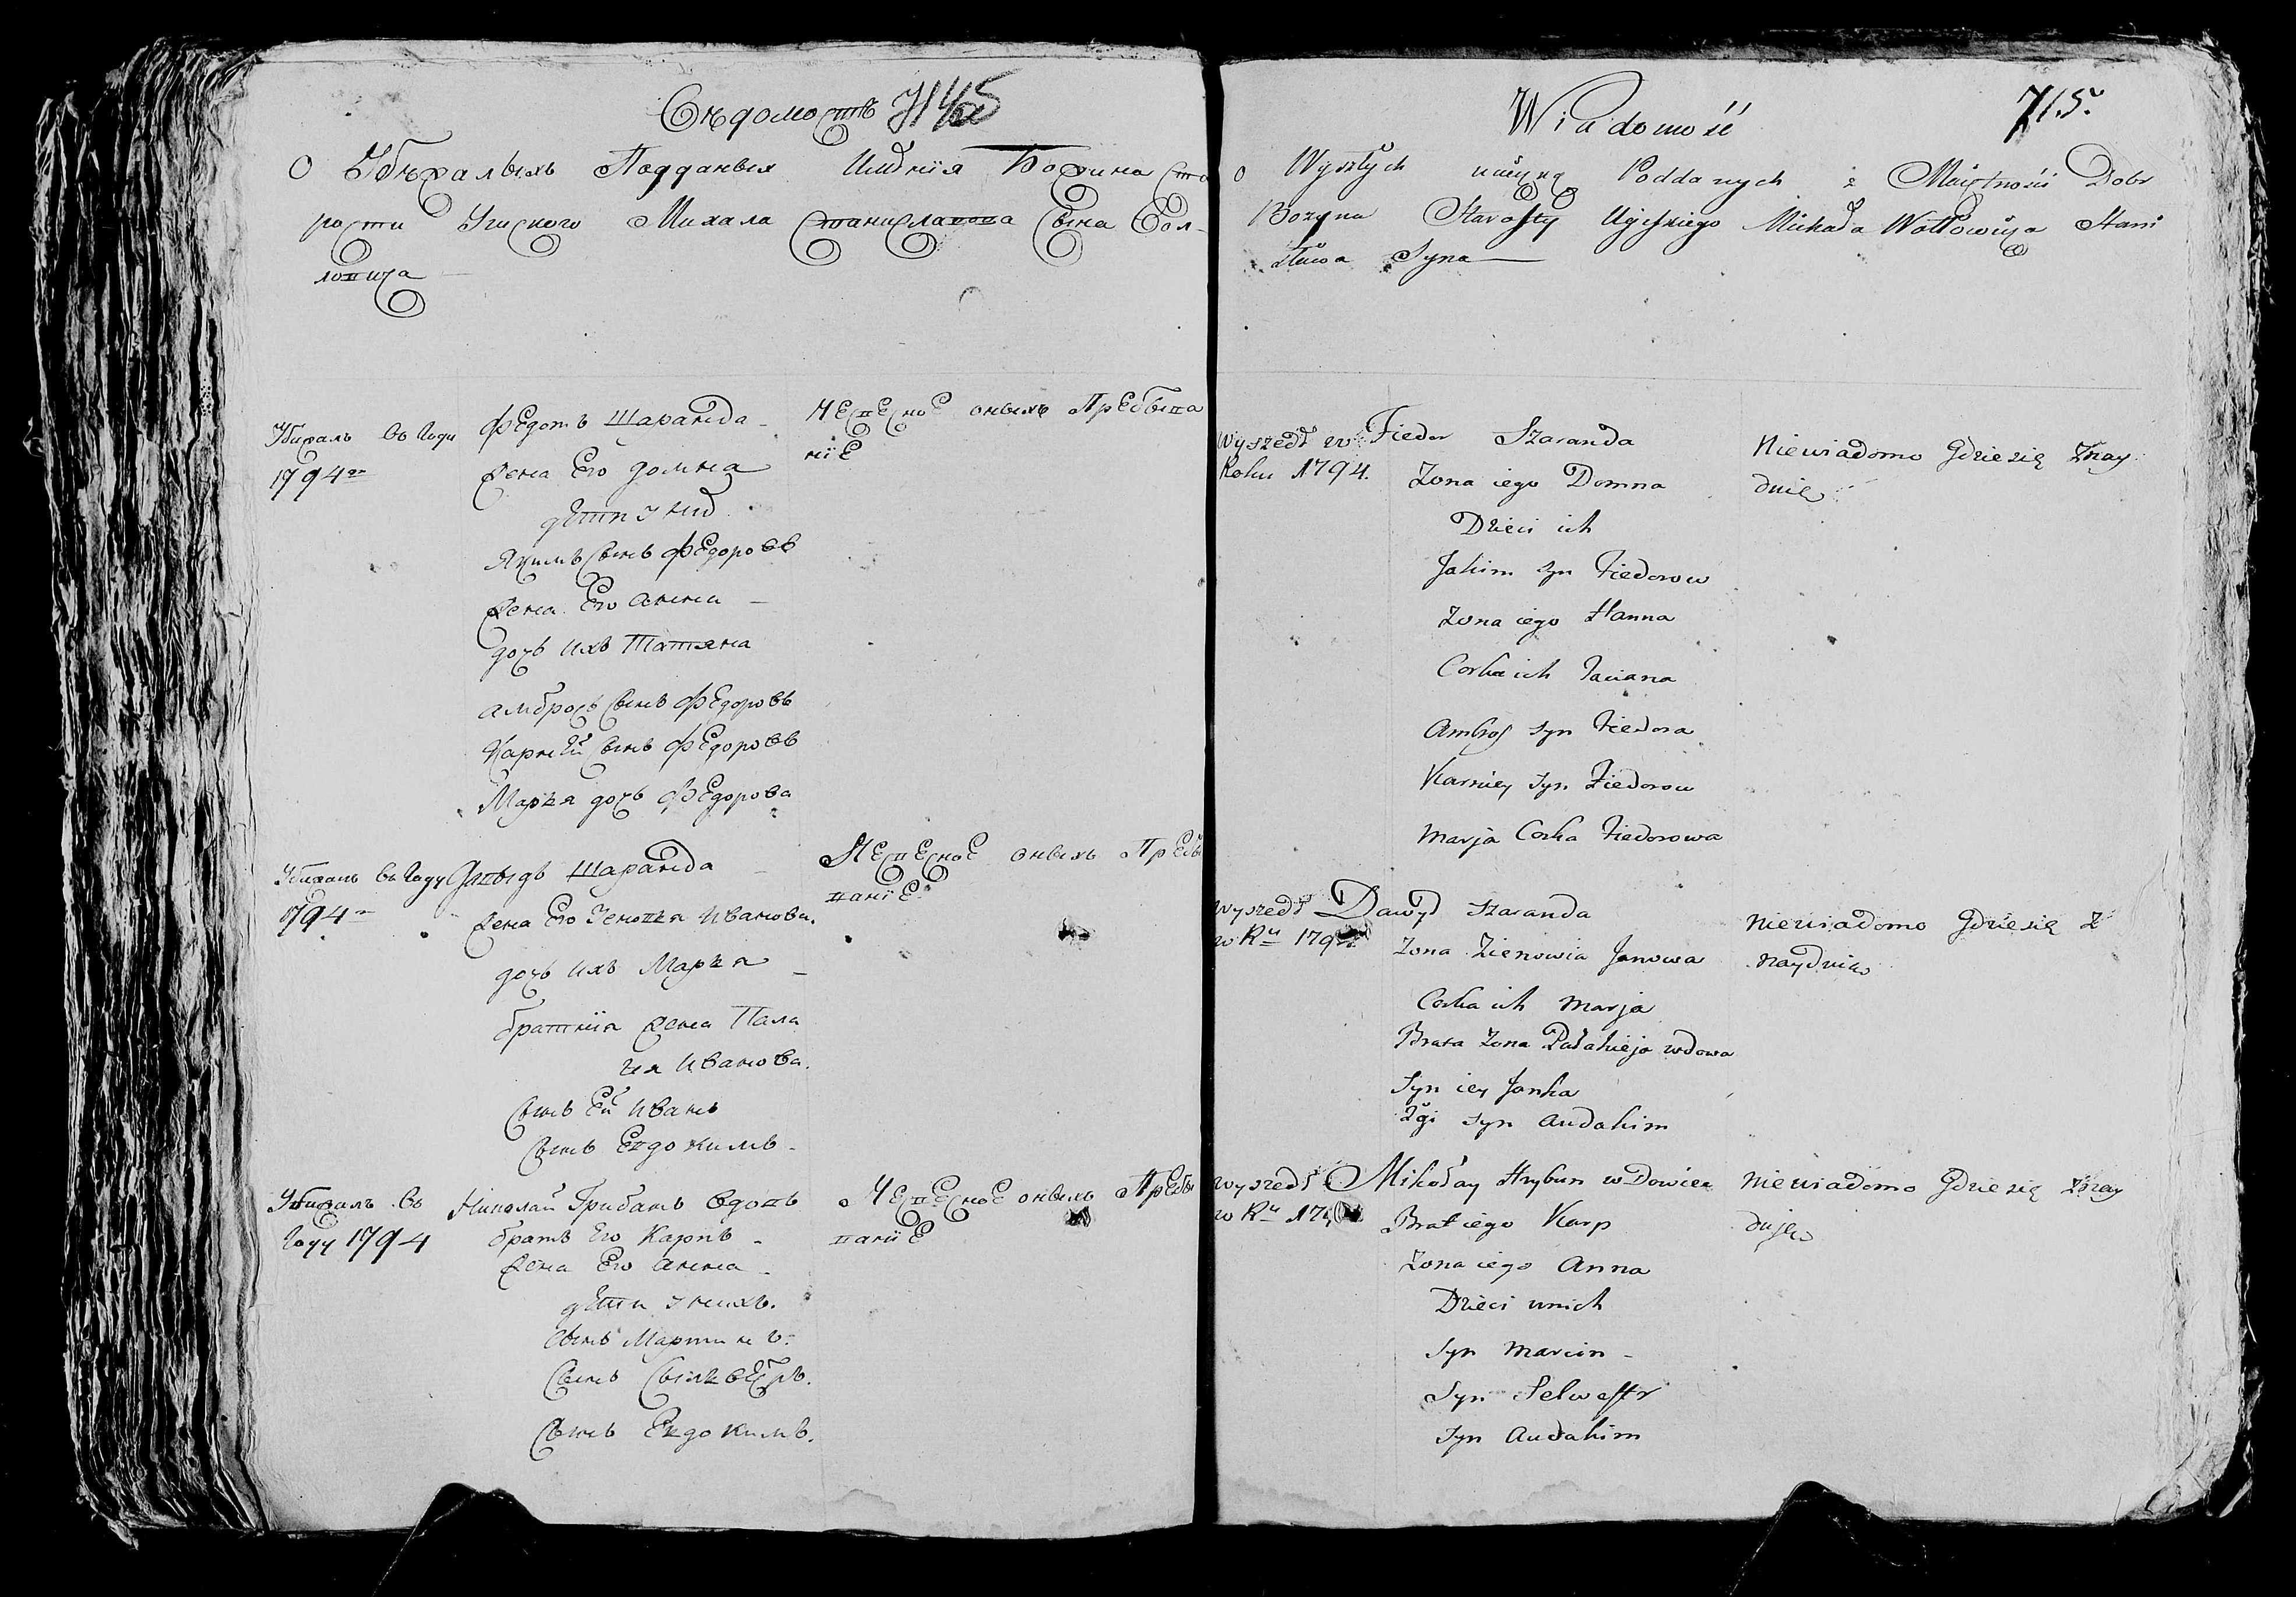 Свѣдомость 714
о Убѣжалыхъ Подданыхъ Имѣнія Божина Ста
росты Угиского Михала Станиславова Сына Вол-
ловича
Убижалъ въ Году
1794го
Федоръ Шаранда
Жена Его Домна
дети з ней
Якимъ Сынъ Федоровъ
Жена Его Анна
дочь ихъ Татяна
Амбросъ Сынъ Федоровъ
Карней Сынъ Федоровъ
Марья дочь Федорова
Неизвесное оныхъ Пребыва
ніе
Убижалъ въ Году
1794го
Давыдъ Шаранда
Жена Его Зеновья Иванова.
дочь ихъ Марья
братнія Жена Пала
гея Иванова.
Сынъ Ей Иванъ
Сынъ Евдокимъ
Неизвесное оныхъ Пребы
ваніе
Убижалъ въ
Году 1794
Николай Грибанъ вдовъ
братъ Его Карпъ
Жена Его Анна
дети з нихъ.
Сынъ Мартинъ
Сынъ Сильвестръ.
Сынъ Евдокимъ.
Неизвесное оныхъ Пребы
ваніе
Wiadomość 715.
o Wyszłych Poddanych z Maiętności Dobr
Bożyna Starosty Ugiskiego Michała Wołłowicza Stani
sława Syna
Wyszedł w
Roku 1794.
Fiedor Szaranda
Żona iego Domna
Dzieci ich
Jakim Syn Fiedorow
Żona iego Hanna
Corka ich Taciana
Ambroś Syn Fiedora
Karniey Syn Fiedorow
Marja Corka Fiedorowa
Niewiadomo Gdzie się Znay
duie
Wyszedł
w Ru
Dawyd Szaranda
Żona Zienowia Janowa
Corka ich Marja
Brata Żona Pałahieja wdowa
Syn iey Janka
2gi Syn Audakim
Niewiadomo Gdzie się Z
nayduie
Wyszedł
w Ru
Mikołay Hrybun wdowiec
Brat iego Karp
Żona iego Anna
Dzieci unich
Syn Marcin
Syn Selwestr
Syn Audakim
Niewiadomo Gdzie się Znay
duje